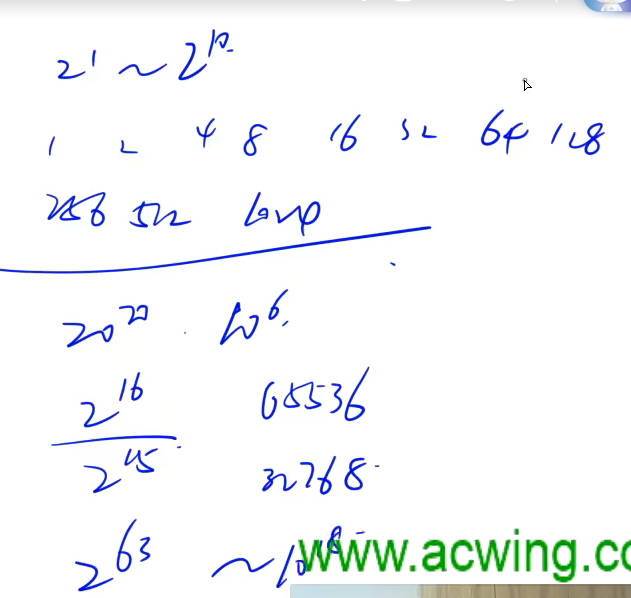 2¹ ~ 2¹⁰
1 2 4 8 16 32 64 128
256 512
20²⁰ 10⁶
2¹⁶ 65536
2¹⁵ 32768
2⁶³ ~10
www.acwing.co